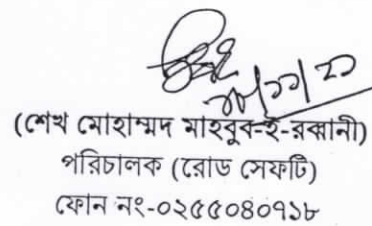 (শেখ মোহাম্মদ মাহবুব-ই-রব্বানী)
পরিচালক (রোড সেফটি)
ফোন নং-০২৫৫০৪০৭১৮